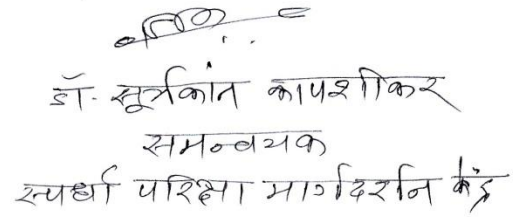 डॉ. सूर्यकांत कापशीकर
समन्वयक
स्पर्धा परिक्षा मार्गदर्शन केंद्र